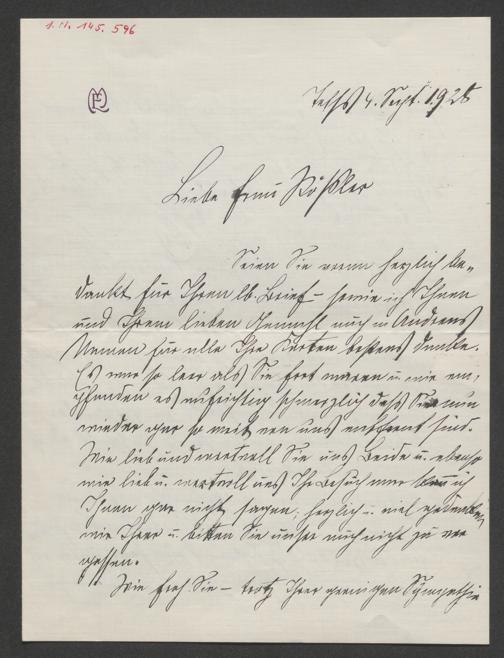 I.N. 145.596
Telfs 4. Sept. 1928
Liebe Frau Rößler
Seien Sie wenn herzlich be-
dankt für Ihren lb. Brief – sowie ich Ihnen
und Ihrem lieben Gemahl auch in Andreas
Namen für alle Ihre Karten bestens danke.
Es war so leer als Sie fort waren u. wir em,
pfanden es aufrichtig schmerzlich daß Sie nun
wieder gar so weit von uns entfernt sind.
Wie lieb und wertvoll Sie uns Beide u. ebenso
wie lieb u. wertvoll uns Ihr Besuch war kann ich
Ihnen gar nicht sagen; herzlich u. viel gedenken
wir Ihrer u. bitten Sie unser auch nicht zu ver
gessen.
Wie froh Sie – trotz Ihrer geenigen Sympathie